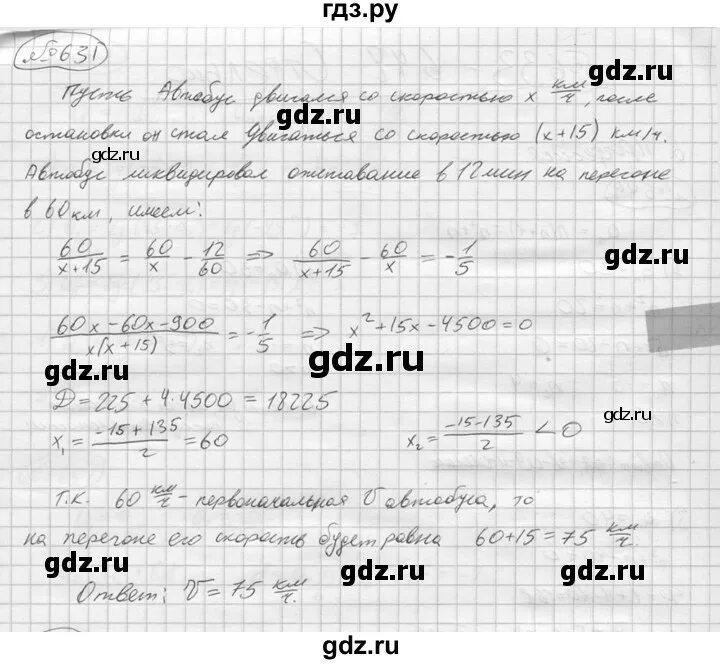 гдз.ру
№631
Пусть Автобус двигался со скоростью x км/ч, после
gdz.ru
остановки он стал двигаться со скоростью (x+15) км/ч.
gdz.ru
Автобус ликвидировал отставание в 12 мин на перегоне
в 60 км, имеем:
gdz.ru
60/(x+15) = 60/x - 12/60 => 60/(x+15) - 60/x = -1/5
(60x-60x-900)/(x(x+15)) = -1/5 => x²+15x-4500=0
gdz.ru
gdz.ru
Д=225+4·4500=18225
gdz.ru
x₁ = (-15+135)/2 = 60 x₂ = (-15-135)/2 < 0
gdz.ru
Т.К. 60 км/ч - первоначальная V автобуса, то
на перегоне его скорость будет равна 60+15=75 км/ч.
gdz.ru
gdz.ru
gdz.ru
Ответ: V=75 км/ч.
gdz.ru